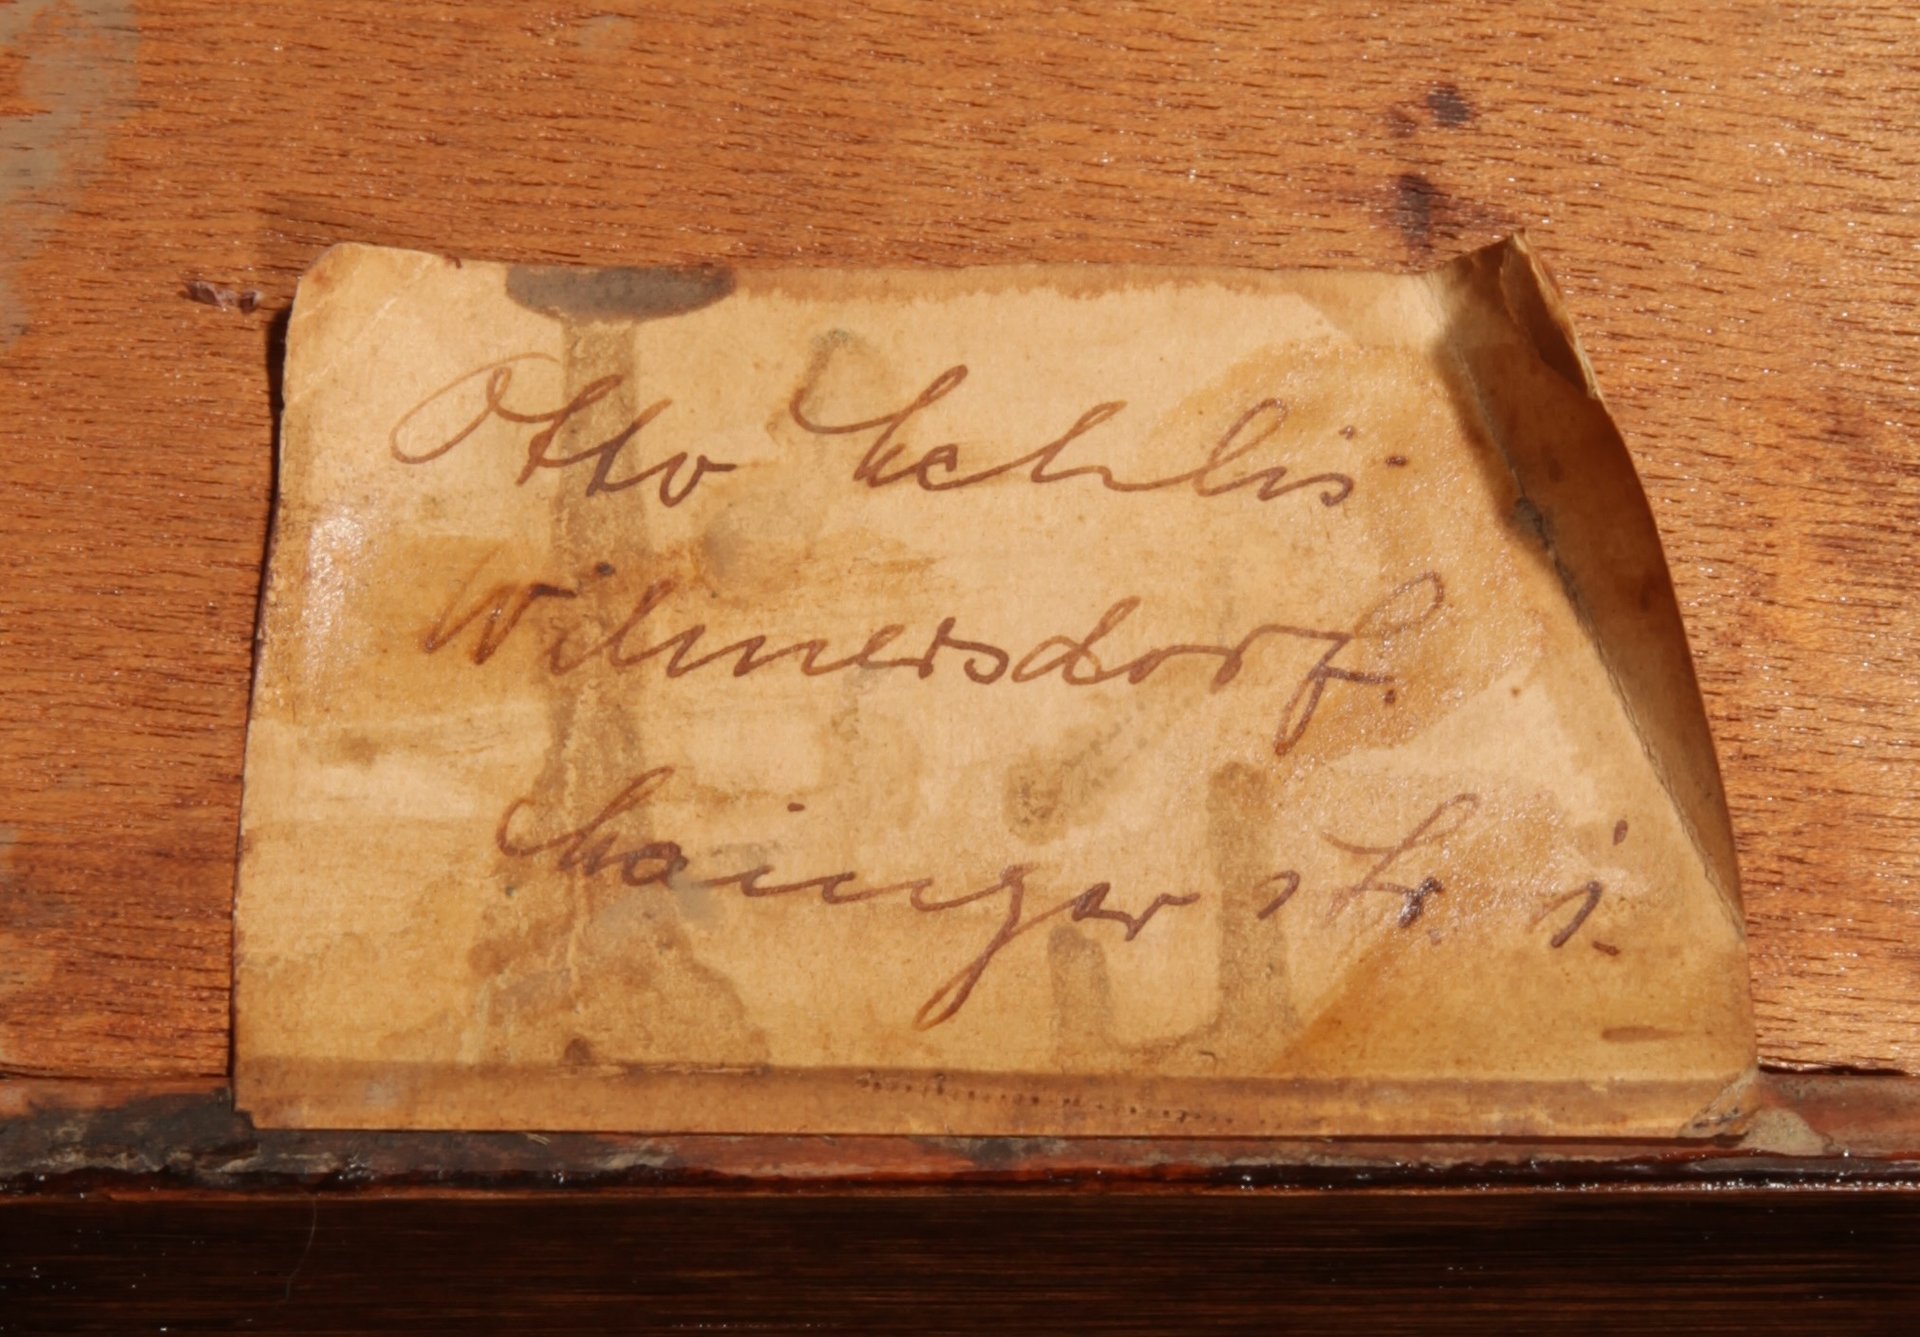 Otto Mehlis
Wilmersdorf.
Mainzer Str. 1.